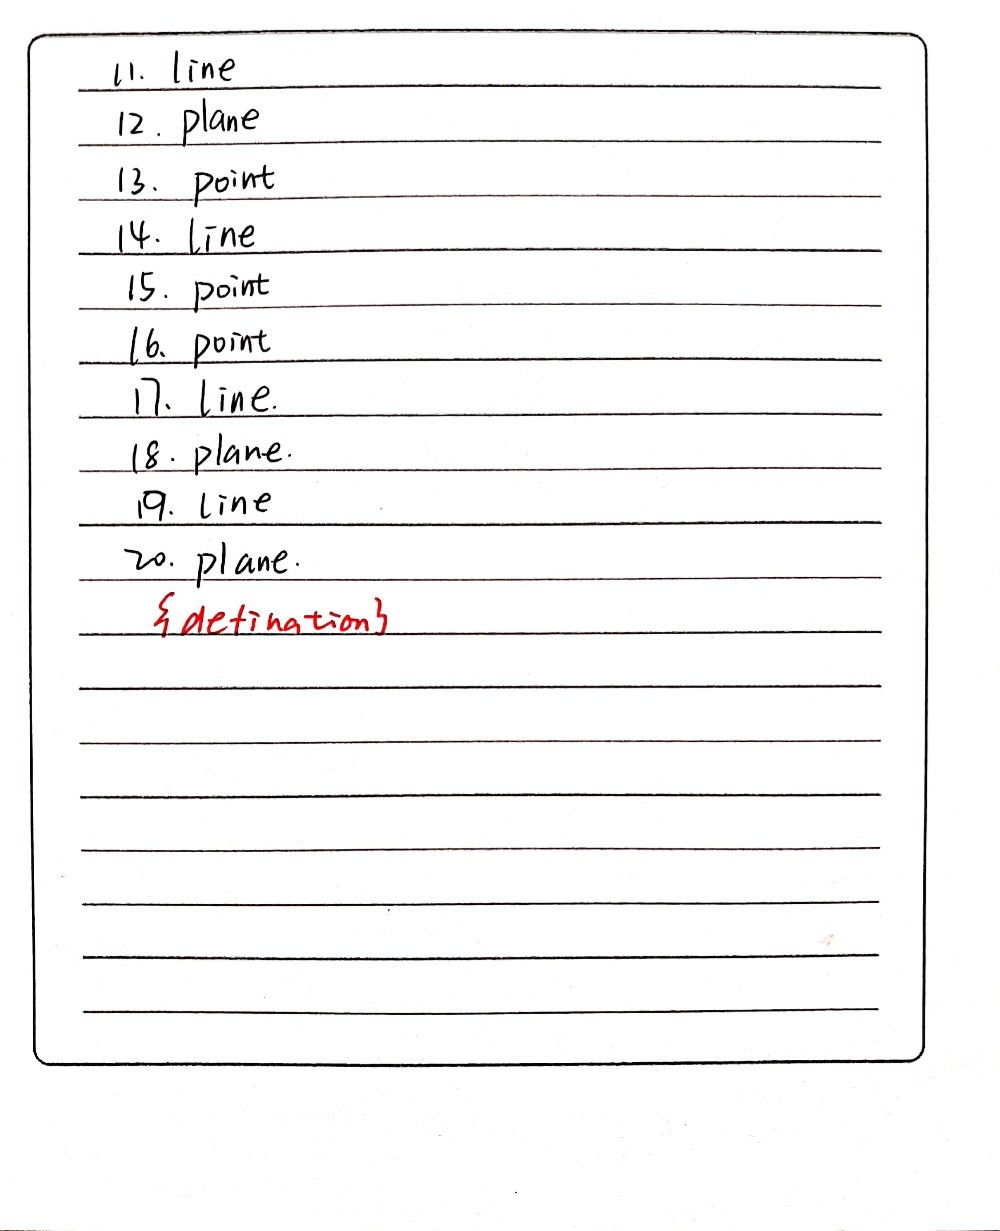 11. line
12. plane
13. point
14. line
15. point
16. point
17. line.
18. plane.
19. line
20. plane.
{defination}